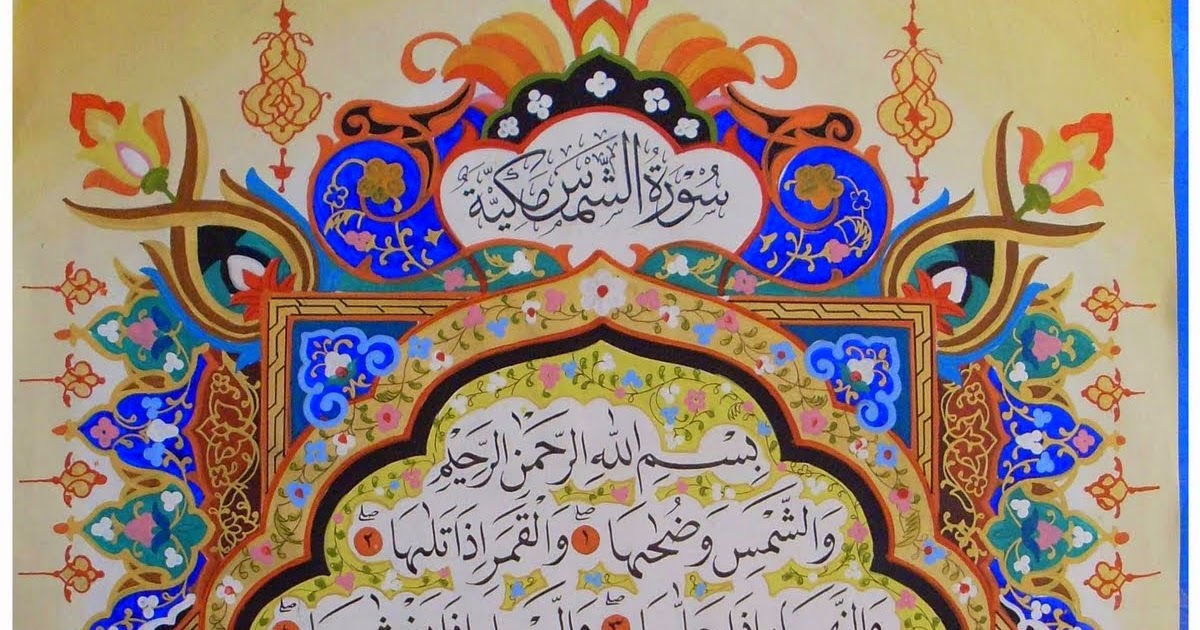 سُورَةُ الشَّمْسِ مَكِّيَّة
بِسْمِ اللهِ الرَّحْمٰنِ الرَّحِيْمِ
وَالشَّمْسِ وَضُحٰىهَا ١ وَالْقَمَرِ اِذَا تَلٰىهَا ٢